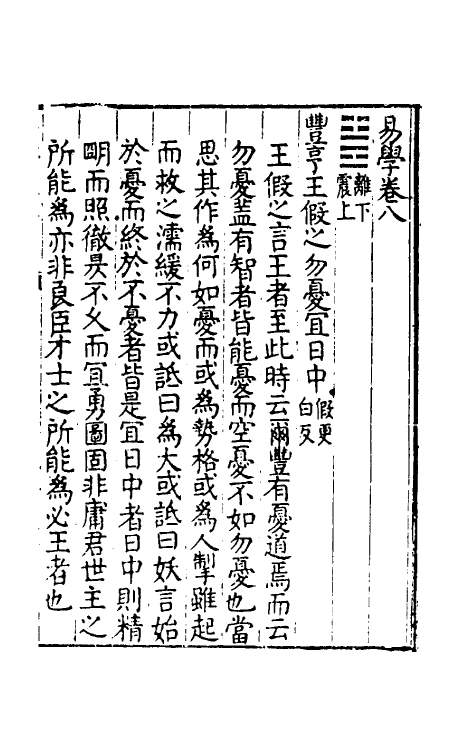 易學卷八
離下
震上
豐亨王假之勿憂宜日中假更
白反
王假之言王者至此時云爾豐有憂道焉而云
勿憂蓋有智者皆能憂而空憂不如勿憂也當
思其作為何如憂而或為勢格或為人掣雖起
而救之濡緩不力或詆曰為大或詆曰妖言始
於憂而終於不憂者皆是宜日中者日中則精
明而照徹昃不久而宜勇圖固非庸君世主之
所能為亦非良臣才士之所能為必王者也